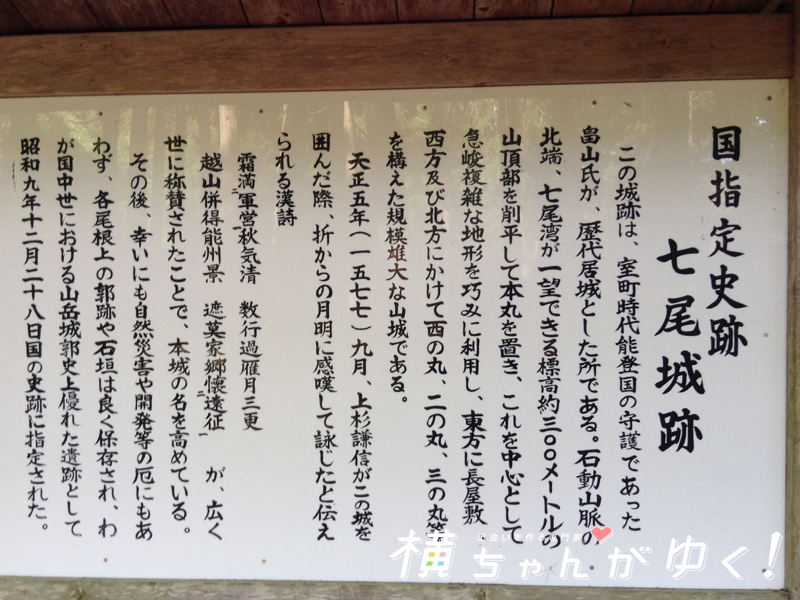 国指定史跡
七尾城跡
この城跡は、室町時代能登国の守護であった
畠山氏が、歴代居城とした所である。石動山脈の
北端、七尾湾が一望できる標高約三〇〇メートルの
山頂部を削平して本丸を置き、これを中心として
急峻複雑な地形を巧みに利用し、東方に長屋敷
西方及び北方にかけて西の丸、二の丸、三の丸等
を構えた規模雄大な山城である。
天正五年(一五七七)九月、上杉謙信がこの城を
囲んだ際、折からの月明に感嘆して詠じたと伝え
られる漢詩
霜満軍営秋気清 数行過雁月三更
越山併得能州景 遮莫家郷懐遠征 が、広く
世に称賛されたことで、本城の名を高めている。
その後、幸いにも自然災害や開発等の厄にもあ
わず、各尾根上の郭跡や石垣は良く保存され、わ
が国中世における山岳城郭史上優れた遺跡として
昭和九年十二月二十八日国の史跡に指定された。
横ちゃんがゆく!